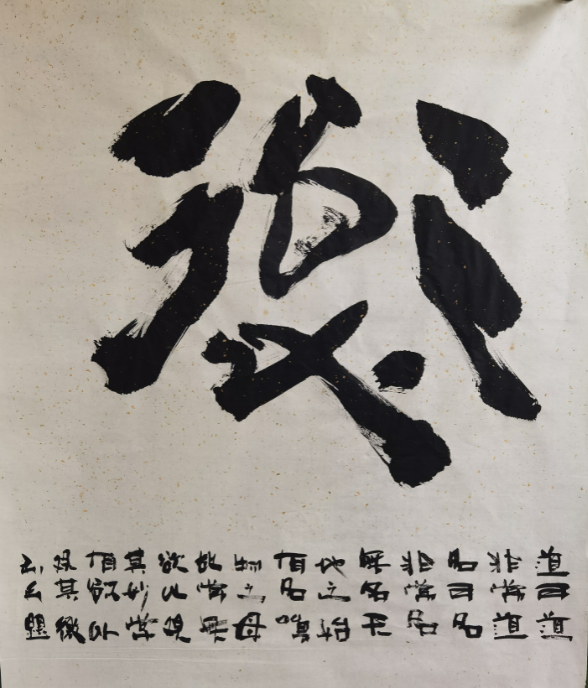 道可道
非常道
名可名
非常名
無名天
地之始
有名萬
物之母
故常無
欲以观
其妙常
有欲以
观其徼